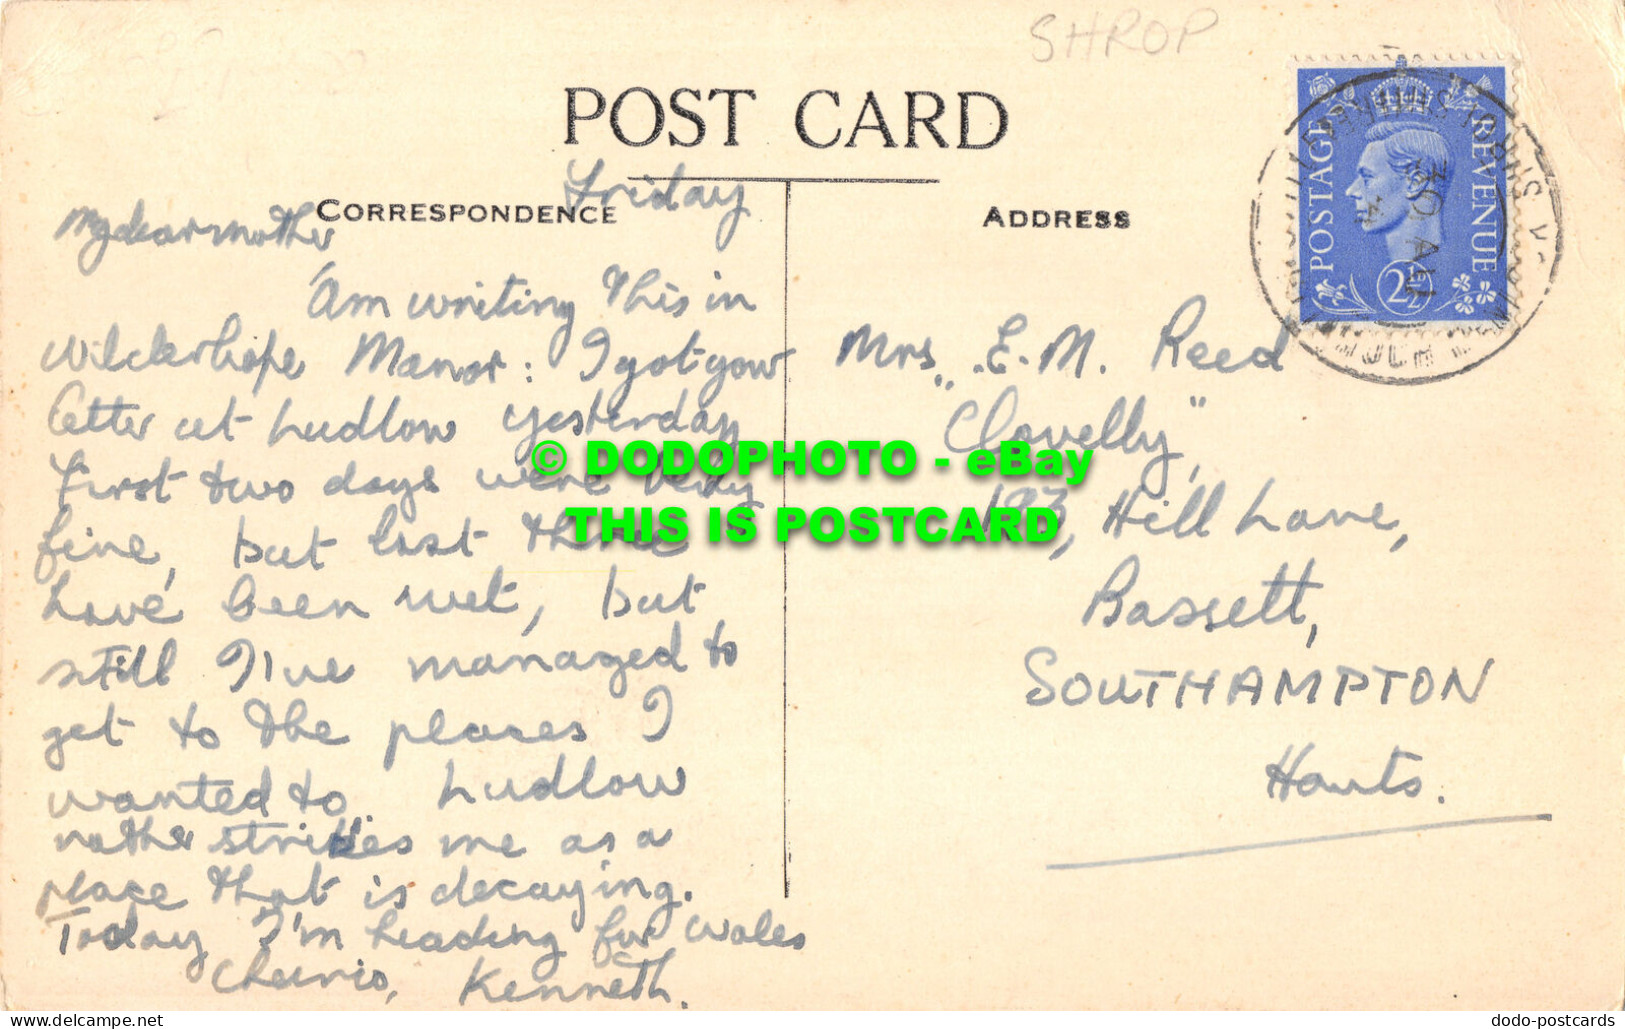 SHROP
POST CARD
CORRESPONDENCE
ADDRESS
POSTAGE
REVENUE
2½D
30 AU
Friday
My dear mother
Am writing this in
Wilderhope Manor: I got your
letter at Ludlow yesterday
First two days were very
fine, but last three
have been wet, but
still I've managed to
get to the places I
wanted to. Ludlow
rather strikes me as a
place that is decaying.
Today I'm heading for Wales
Cheerio, Kenneth.
Mrs. E. M. Reed
"Clovelly",
193, Hill Lane,
Bassett,
SOUTHAMPTON
Hants.
© DODOPHOTO - eBay
THIS IS POSTCARD
www.delcampe.net
dodo-postcards